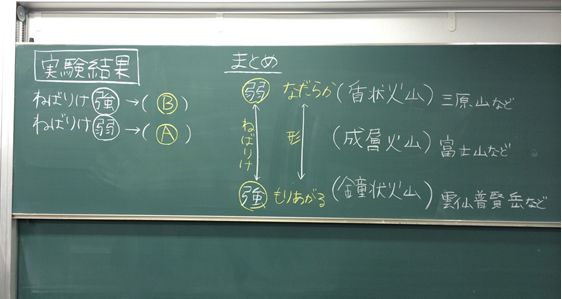 実験結果
ねばりけ強→(Ⓑ)
ねばりけ弱→(Ⓐ)
まとめ
弱 なだらか(盾状火山) 三原山など
ねばりけ 形 (成層火山) 富士山など
強 もりあがる(鐘状火山) 雲仙普賢岳など